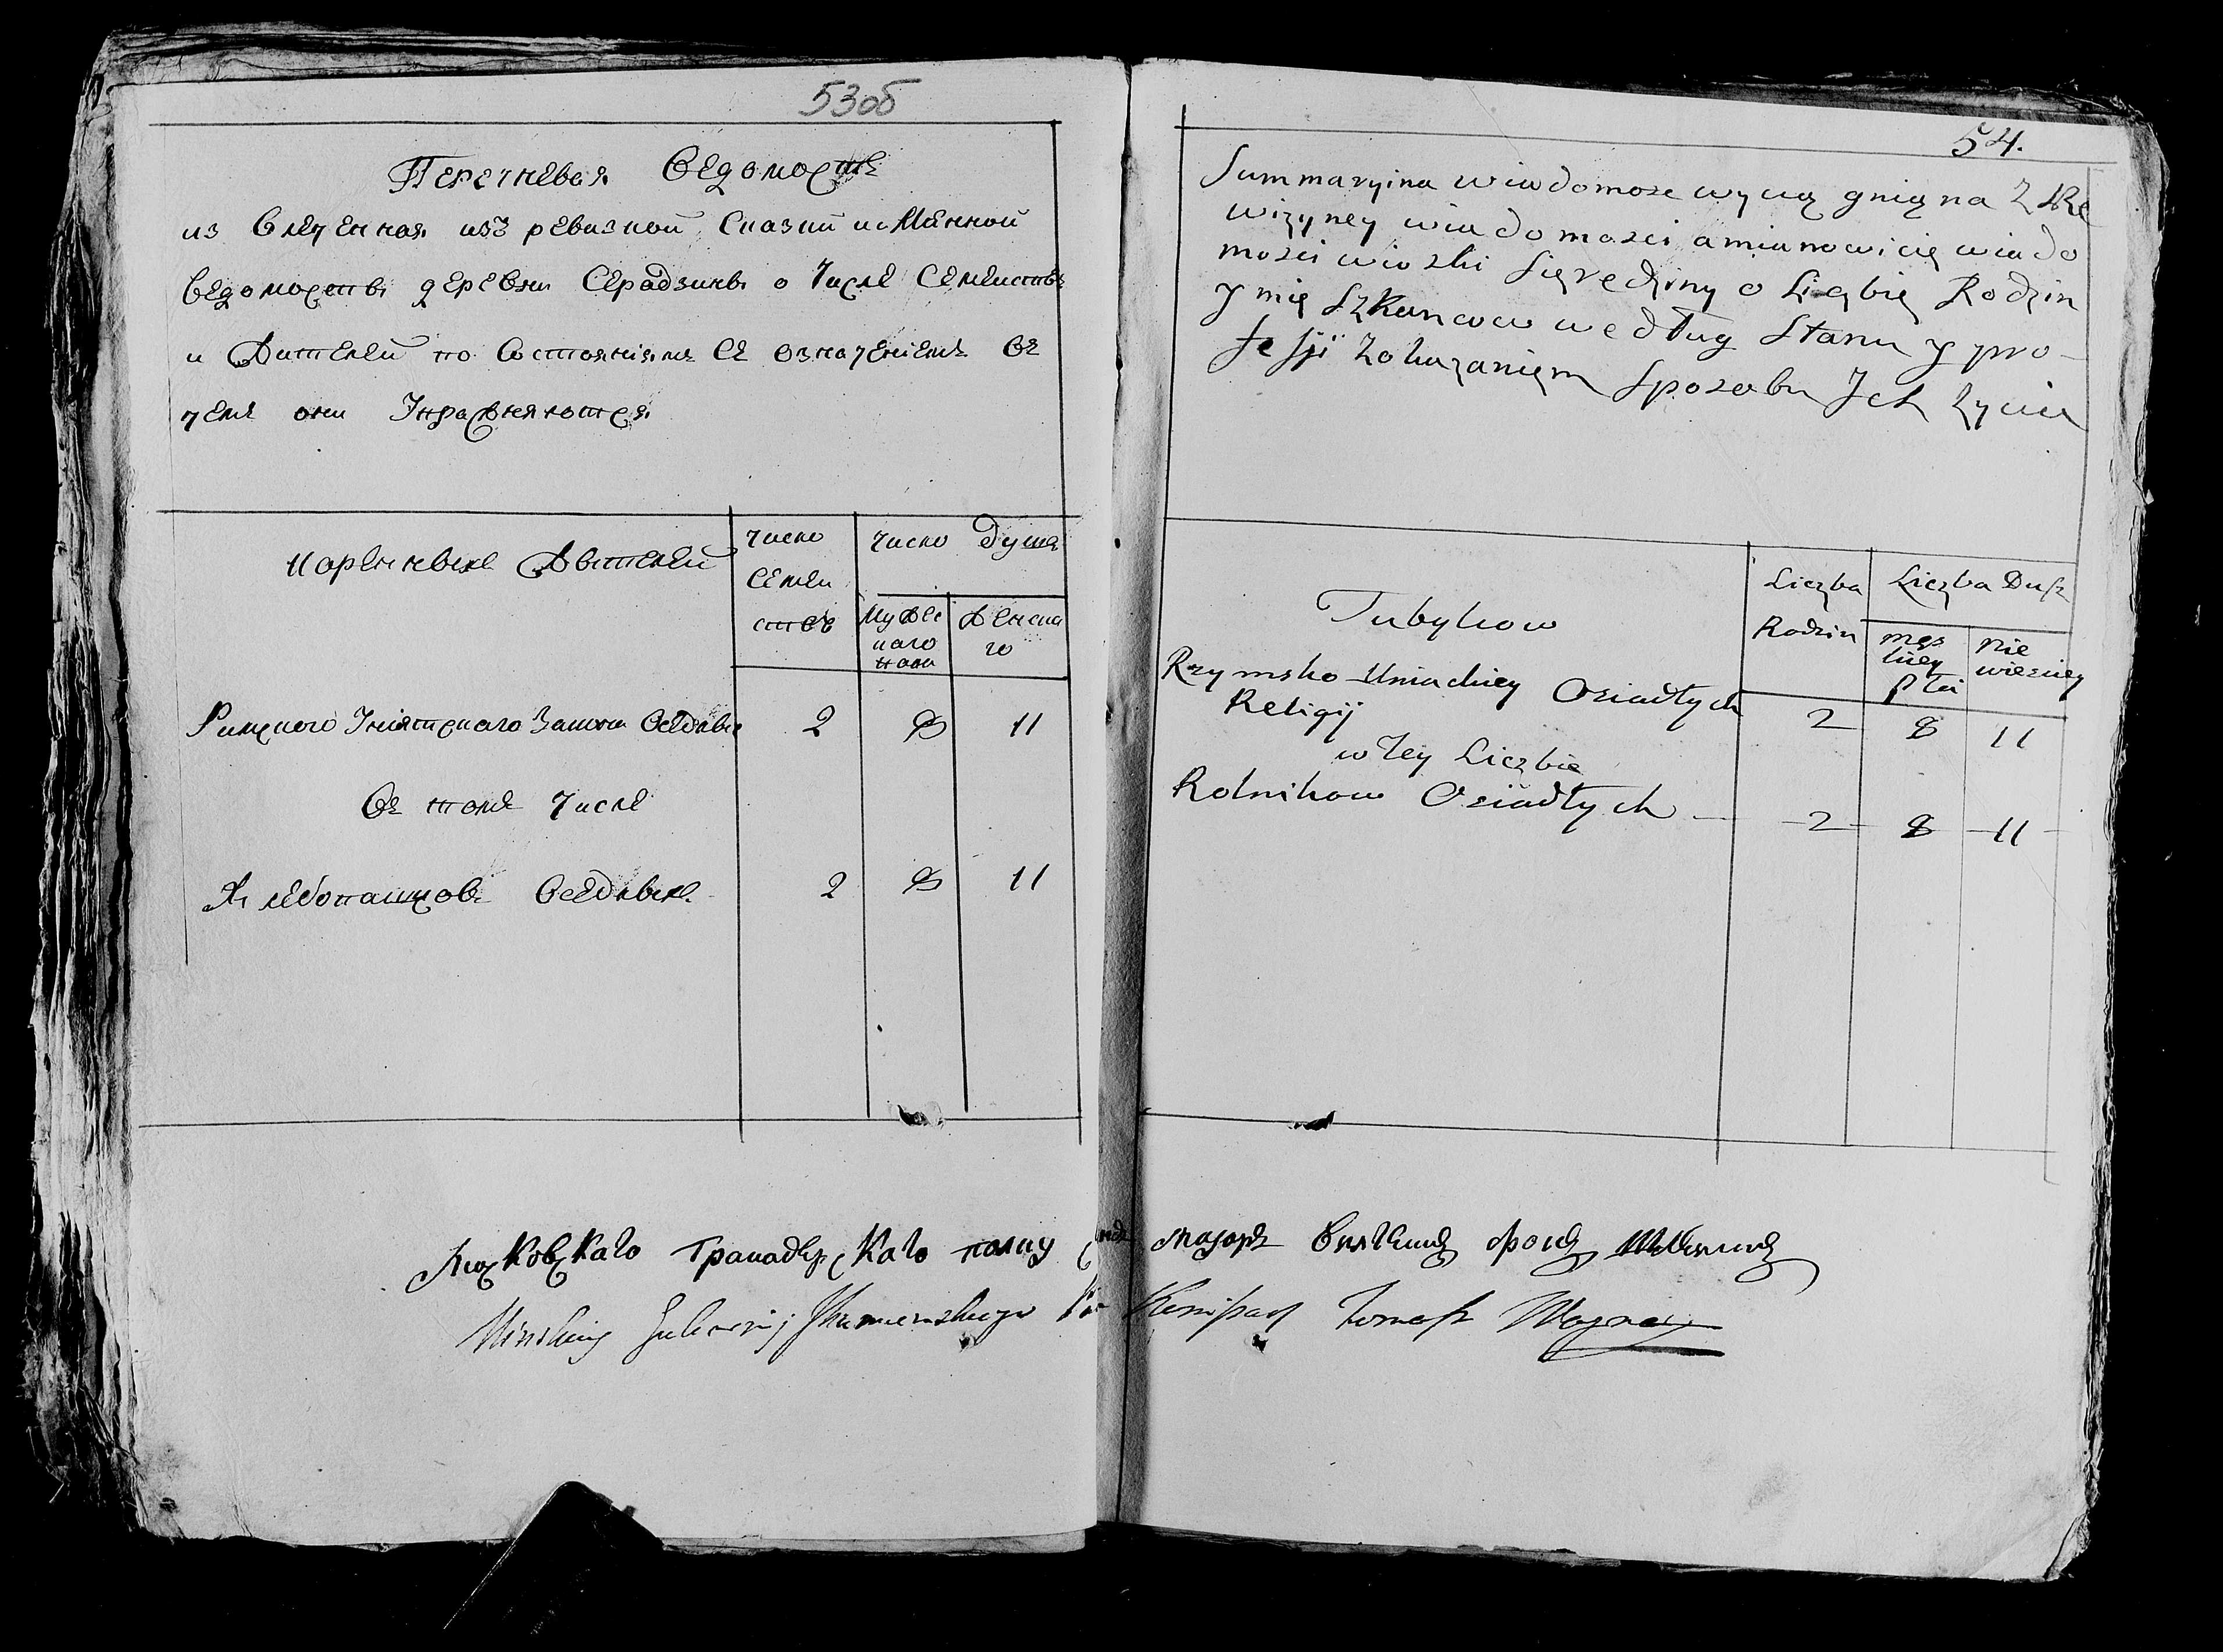 53об
Перечневая Ведомость
из влеченная изъ ревизной Сказки иМянной
ведомость деревни Серадзинъ о Числе Семействъ
и Жителей по Состояніямъ Съ означеніемъ въ
чемъ они Упражняются
Корѣнныхъ Жытелей
Число Семей ствъ
Число Душъ
Мужес каго пола
Женска го
Римского Уніятского Закона Оседлых 2 8 11
Въ томъ Числе
Хлебопашцовъ Оседлыхъ 2 8 11
54.
Summaryina wiadomosc wyciągnięna Z Re
wizyney wiadomosci amianowicię wiado
mosci wioski Sięredziny o Liczbię Rodzin
y mię Szkancow według Stanu y pro-
fesji Zokazanięm Sposobu Ich Zycia
Tubylcow
Liczba Rodzin
Liczba Dusz
męs kiey Płci
nie wiesciey
Rzymsko-Uniackiey Osiadłych 2 8 11
Religij
w tey Liczbie
Rolnikow Osiadłych 2 8 11
Московскаго Гранадерскаго полку маіоръ фонъ
Tomasz